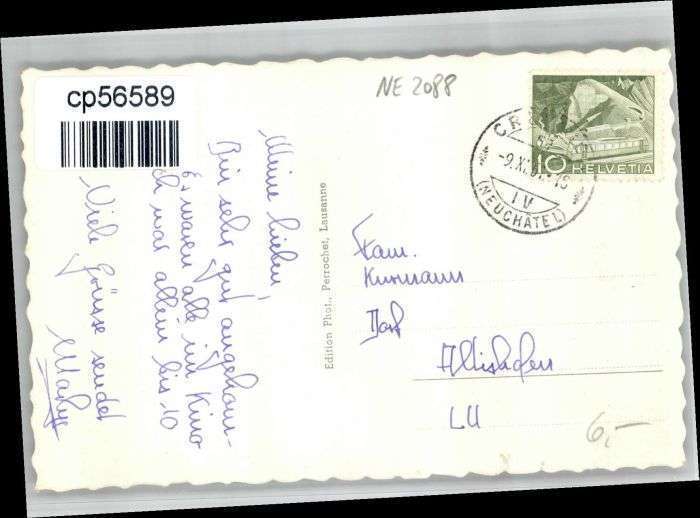 cp56589
NE 2088
Meine lieben,
Bin sehr gut angekom-
Es waren alle im Kino
ich war allein bis 10
Viele Grüsse sendet
Edition Phot., Perrochet, Lausanne
CR
-9.X
IV
(NEUCHÂTEL)
10 HELVETIA
Fam.
Kurmann
Dorf
Altishofen
LU
6,-